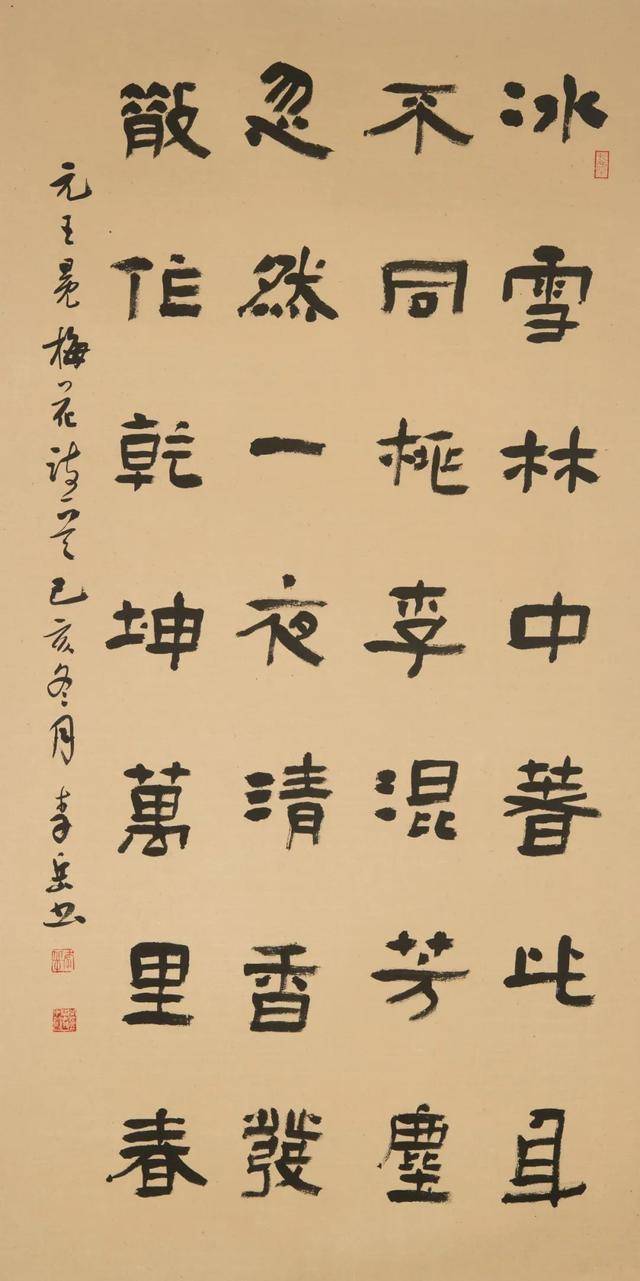 冰雪林中著此身
不同桃李混芳塵
忽然一夜清香發
散作乾坤萬里春
元王冕梅花诗一首己亥冬月李岳书